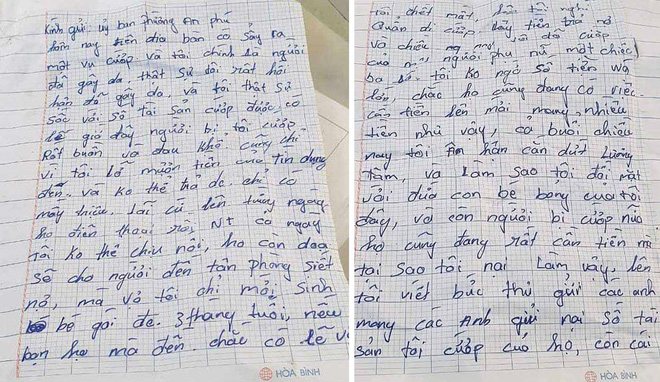 kính gửi: ủy ban phường An phú
hôm nay trên địa bàn có sảy ra
một vụ cướp và tôi chính là người
đã gây da, thật sự tôi rất hối
hận đã gây da, và tôi thật sự
sốc với số tài sản cướp được, có
lẽ giờ đây người bị tôi cướp
Rất buồn và đau khổ cũng chỉ
vì tôi lỡ mượn tiền của Tín dụng
đen. và ko thể trả dc. chỉ có
mấy triệu. lãi cứ lên từng ngày
họ điện thoại rồi NT cả ngày
Tôi ko thể chịu nổi, họ còn dọa
sẽ cho người đến tận phòng siết
nở, mà vỏ tôi chỉ mới sinh
bé gái đc. 3 tháng tuổi, nếu
bọn họ mà đến. chắc có lẽ vỏ
HÒA BÌNH
tôi chết mất, tôi nghĩ
Quẩn đi cướp lấy tiền trả nợ
và chiều tôi đã cướp
của người phụ nữ một chiếc
ba lô. tôi ko ngờ số tiền wá
lớn, chắc họ cũng đang có việc
cần tiền lên mới mang nhiều
tiền như vậy, cả buổi chiều
nay tôi ân hận cắn dứt Lương
Tâm, và Làm sao tôi đối mặt
với đứa con bé bỏng của tôi
đây, và con người bị cướp nữa
họ cũng đang rất cần tiền mà
tại sao tôi nại Làm vậy, lên
tôi viết bức thư gửi các anh
mong các Anh gửi nại số tài
sản tôi cướp của họ, còn cái
HÒA BÌNH